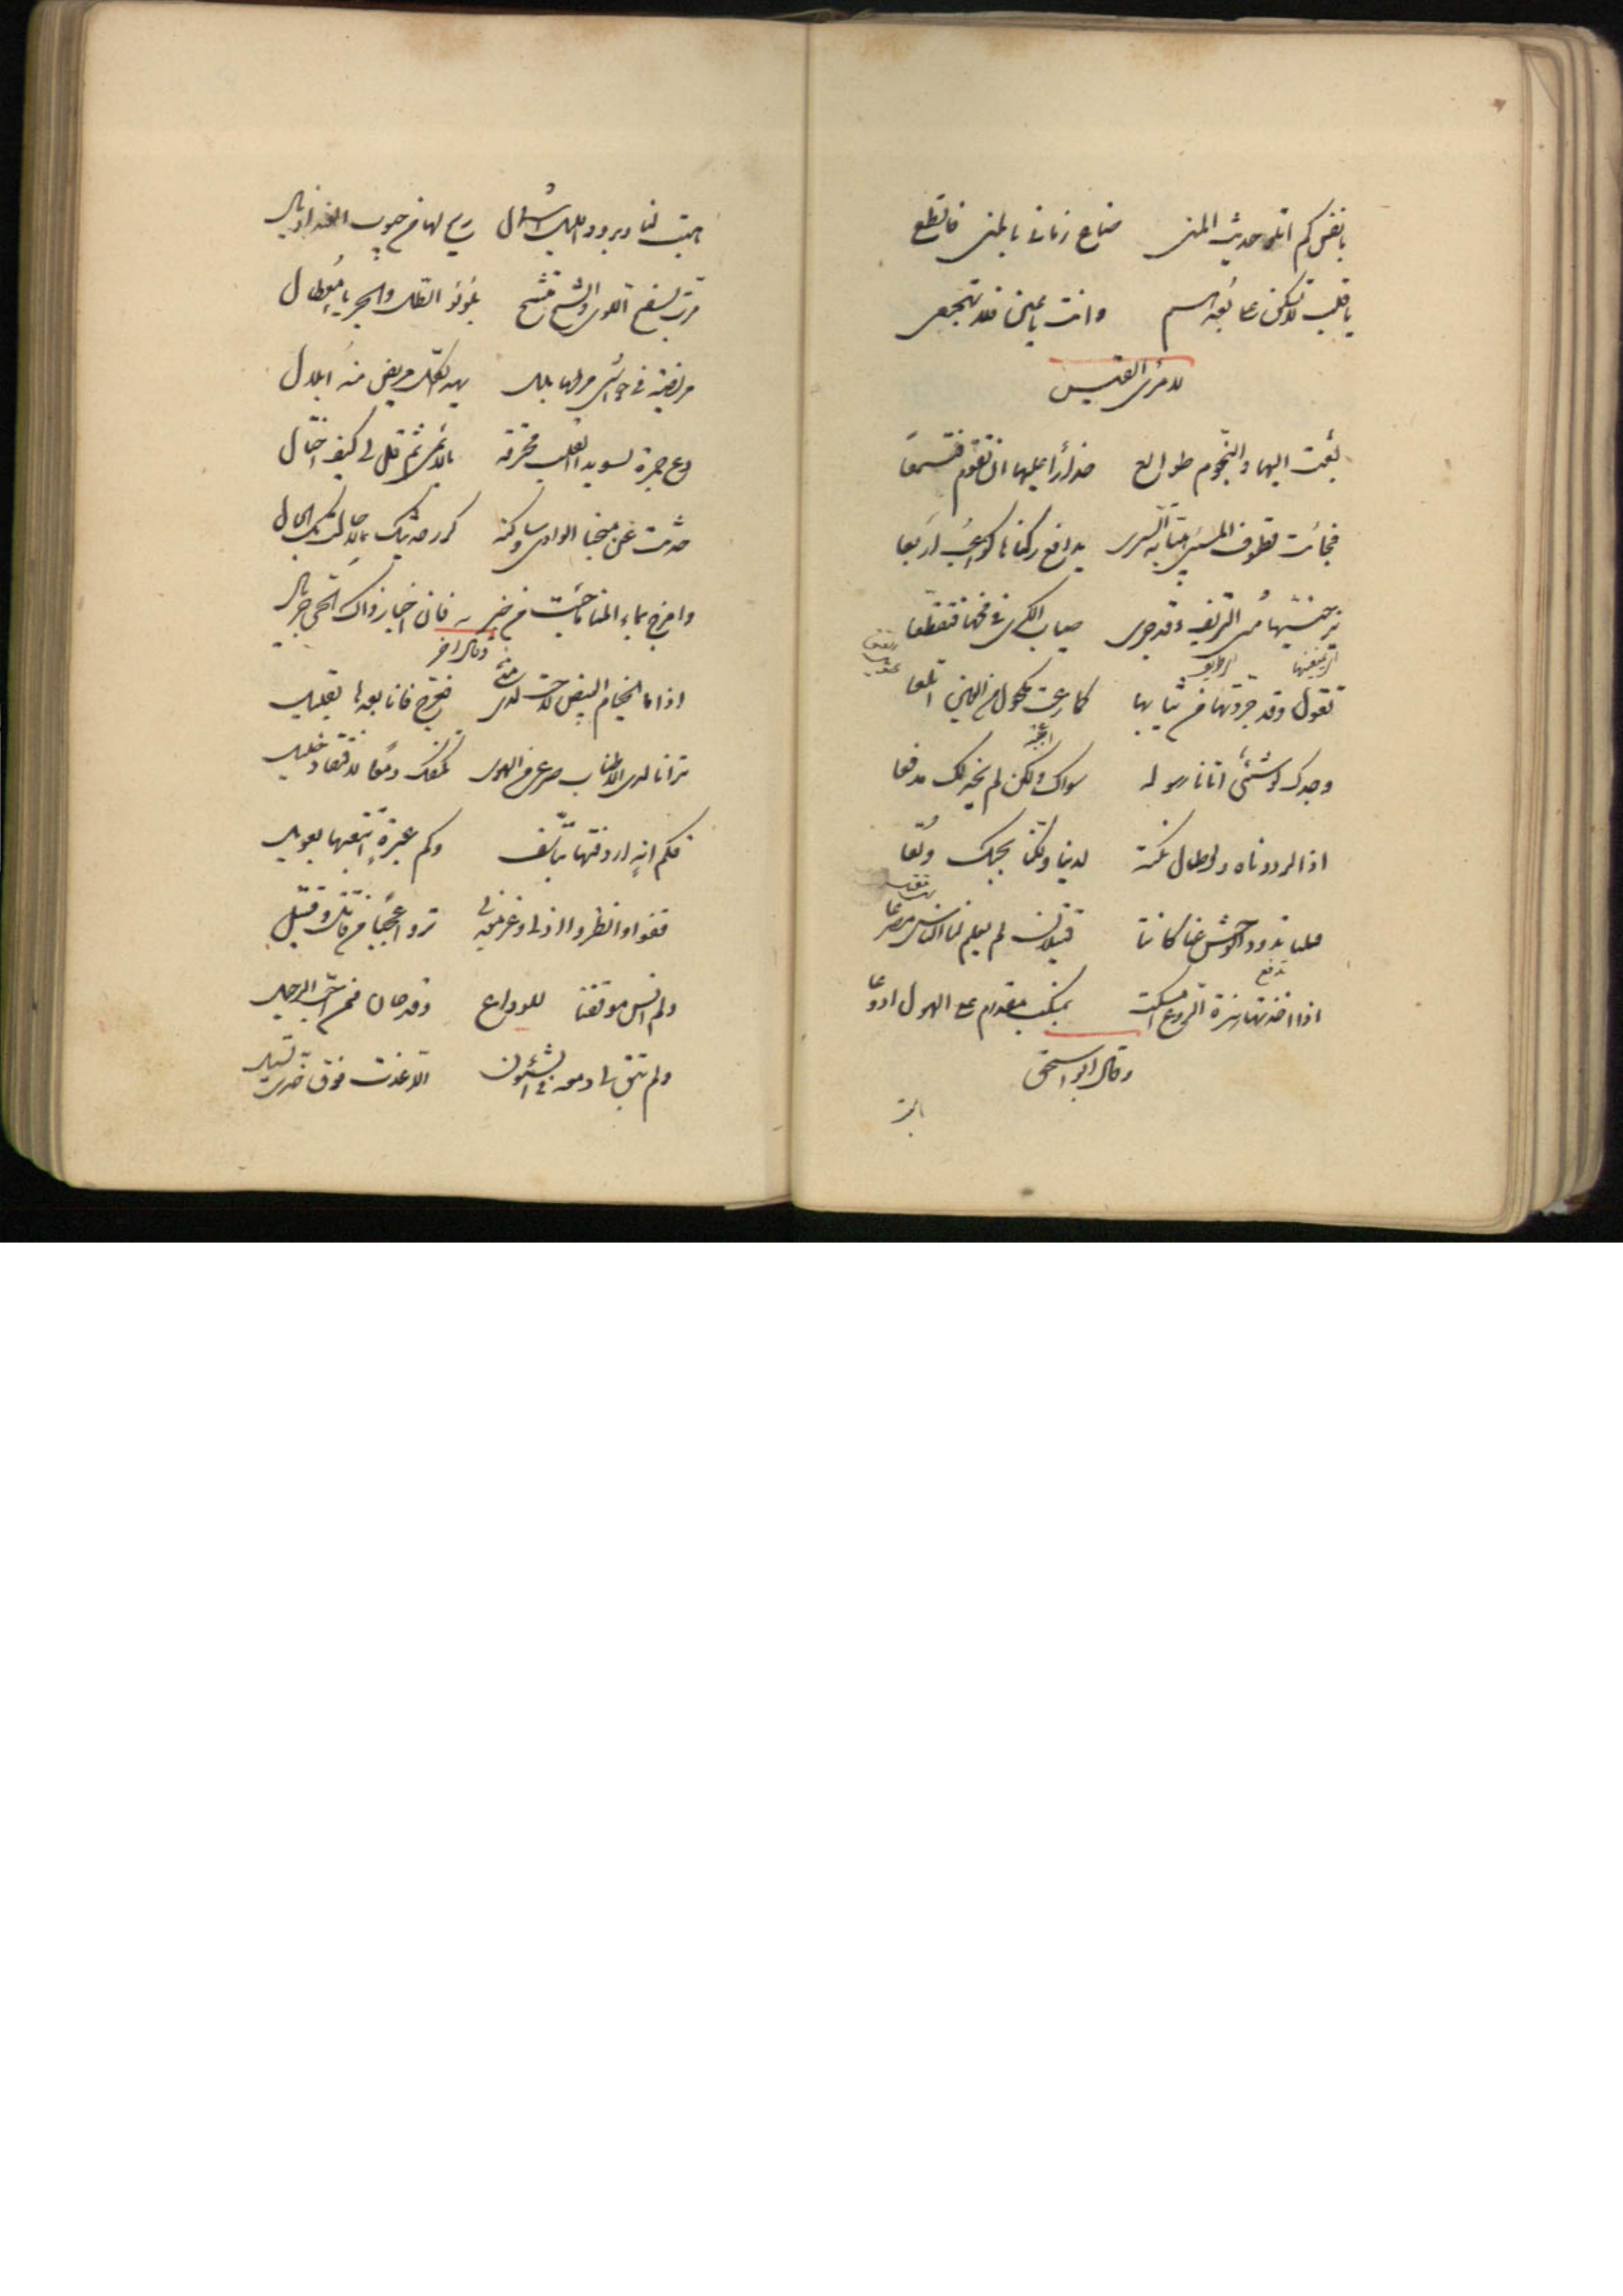 يا نفس كم اتلو حديث المنى ضاع زماني بالمنى فاقطع
يا قلب لا تسكن بعدهم وانت يا عين فلا تهجعي
لامرئ القيس
بعثت اليها والنجوم طوالع حذارا عليها ان تقوم فتسمعا
فجائت قطوف المشي هيابة السرى يدافع ركناها كواعب اربعا
يزجينها مشي النزيف وقد جرى صباب الكرى في مخها فتقطعا
تقول وقد جردتها من ثيابها كما رعت مكحول من العين اتلعا
وجدك لو شئ اتانا رسوله سواك ولكن لم نجد لك مدفعا
اذا لرددناه ولو طال مكثه لدينا ولكنا بحبك ولعا
فبتنا تذود الوحش عنا كاننا قتيلان لم يعلم لنا الناس مصرعا
اذا اخذتها هزة الروع امسكت بمنكب مقدام على الهول اروعا
وقال ابو اسحق
هبت لنا وبرود الليل اسمال ريح لها من جيوب اذيال
مرت بسفح اللوى والشيح متشح بلؤلؤ الطل والجريا معطال
مريضة في حواشي مرطها بلل يهدي لكل مريض منه ابلال
دع جمرة لسويداء القلب محرقة بالله ثم قل لي كيف احتال
حديث عن منحنى الوادي وساكنه كرر حديثك لا حالت بك الحال
وامزج بماء المنا ما جئت من خبر به فان اخبار ذاك الحي جريال
وقال اخر
اذا ما الخيام البيض لاحت لدى منى فعرج فانا بعدها بقليل
ترانا لدى الاطناب صرعى من الهوى
فكم انة اردفتها بتأسف وكم عبرة اتبعتها بعويل
قفوا وانظروا ذلي وعز معذبي تروا عجبا من قاتل وقتيل
ولم انس موقفنا للوداع وقد حان ممن احب الرحيل
ولم يبق لي دمعة في الشئون الا غدت فوق خدي تسيل